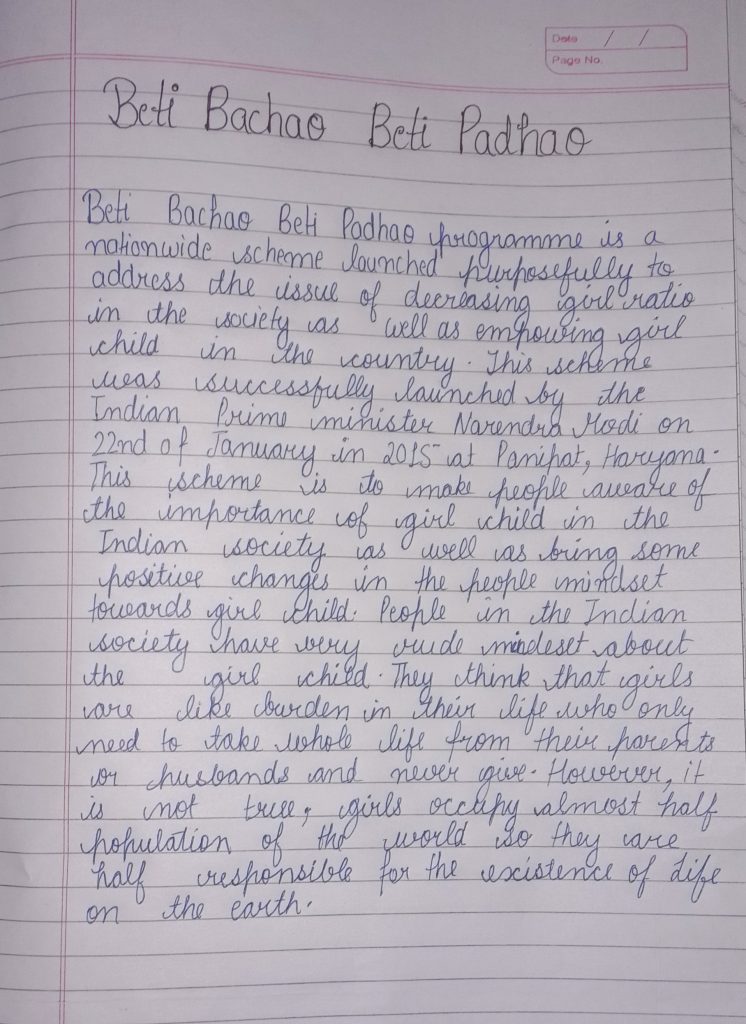 Date / /
Page No.
Beti Bachao Beti Padhao
Beti Bachao Beti Padhao programme is a
nationwide scheme launched purposefully to
address the issue of decreasing girl ratio
in the society as well as empowing girl
child in the country. This scheme
was successfully launched by the
Indian Prime minister Narendra Modi on
22nd of January in 2015 at Panipat, Haryana.
This scheme is to make people aware of
the importance of girl child in the
Indian society as well as bring some
positive changes in the people mindset
towards girl child. People in the Indian
society have very rude mindeset about
the girl child. They think that girls
are like burden in their life who only
need to take whole life from their parents
or husbands and never give. However, it
is not true, girls occupy almost half
population of the world so they are
half responsible for the existence of life
on the earth.